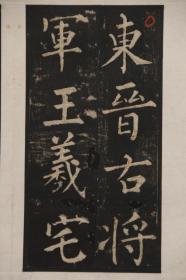 東晉右将
軍王羲宅